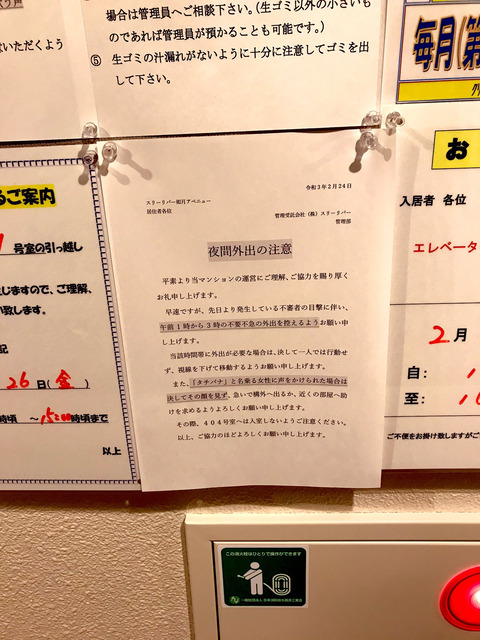 場合は管理員へご相談下さい。（生ゴミ以外の小さいも
のであれば管理員が預かることも可能です。）
⑤ 生ゴミの汁漏れがないように十分に注意してゴミを出
して下さい。
いただくよう
毎月(第
お
入居者 各位
エレベータ
2月
自：
至：
ご不便をお掛け致しますがご
るご案内
号室の引っ越し
じますので、ご理解、
致します。
記
26日(金)
時頃 ～15:00時頃まで
以上
令和3年2月24日
スリーリバー如月アベニュー
居住者各位
管理受託会社（株）スリーリバー
管理部
夜間外出の注意
平素より当マンションの運営にご理解、ご協力を賜り厚く
お礼申し上げます。
早速ですが、先日より発生している不審者の目撃に伴い、
午前1時から3時の不要不急の外出を控えるようお願い申
し上げます。
当該時間帯に外出が必要な場合は、決して一人では行動せ
ず、視線を下げて移動するようお願い申し上げます。
また、「タチバナ」と名乗る女性に声をかけられた場合は
決してその顔を見ず、急いで構外へ出るか、近くの部屋へ助
けを求めるようよろしくお願い申し上げます。
その際、404号室へは入室しないようご注意ください。
以上、ご協力のほどよろしくお願い申し上げます。
この消火栓はひとりで操作ができます